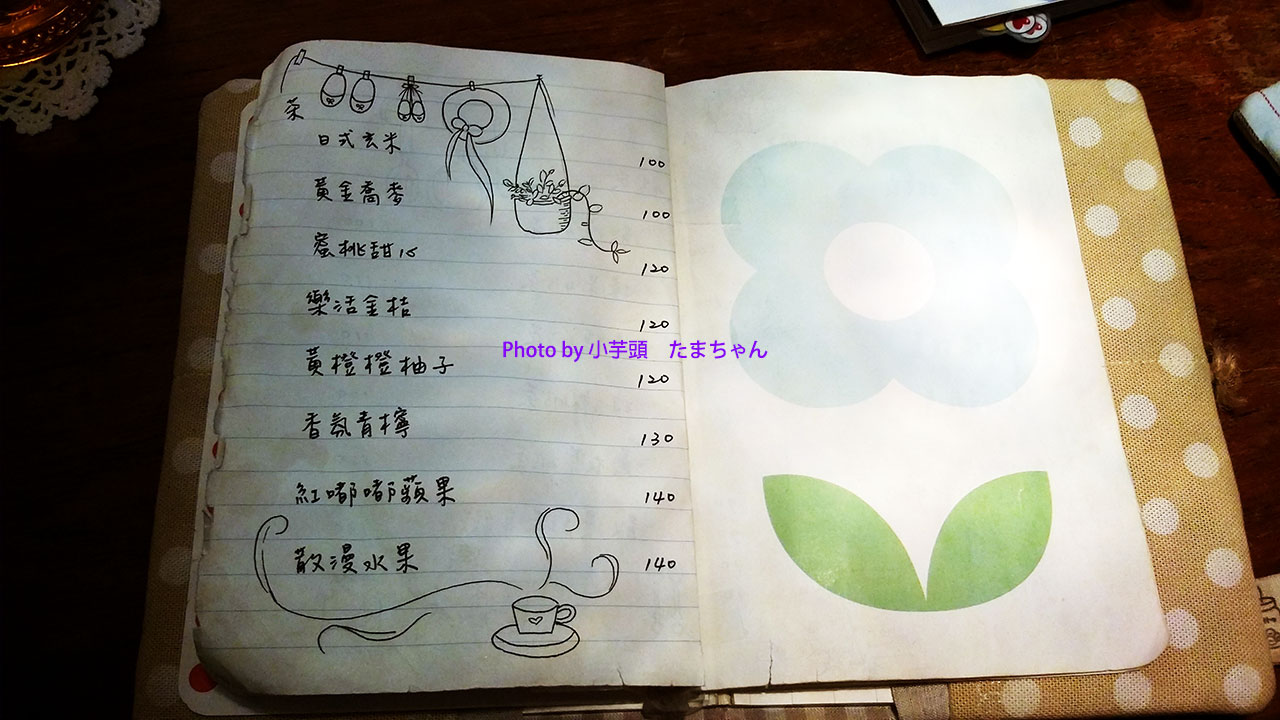 茶
日式玄米 100
黃金喬麥 100
蜜桃甜心 120
樂活金桔 120
黃橙橙柚子 120
香氛青檸 130
紅嘟嘟蘋果 140
散漫水果 140
Photo by 小芋頭　たまちゃん